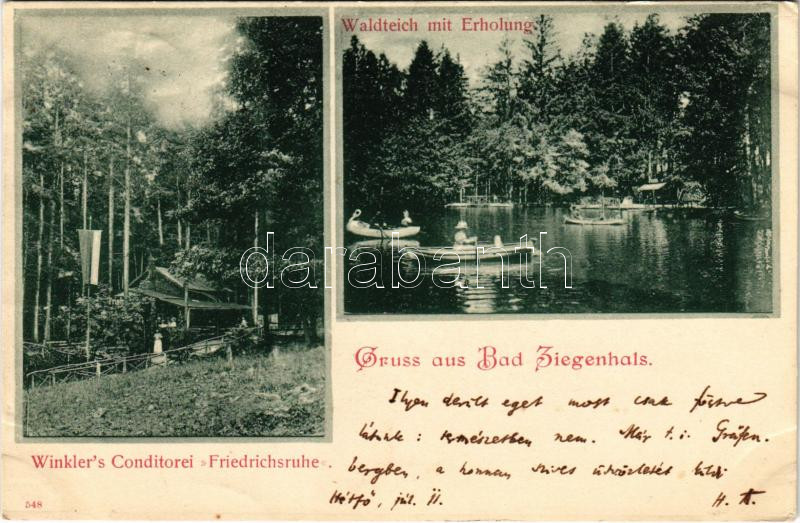 Waldteich mit Erholung.
Winkler's Conditorei »Friedrichsruhe«.
548
Gruss aus Bad Ziegenhals.
Ilyen derült eget most csak festve
látunk: természetben nem. Már t. i. Gräfen-
bergben, a honnan szives üdvözletét küldi
Hétfő, júl. 11. H. A.
darabanth